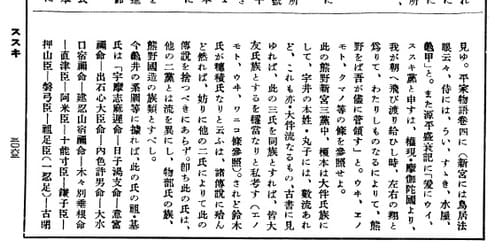 見ゆ。平家物語卷四に『新宮には鳥居法
眼云々、侍には、うい、すゞき、水屋、
龜甲』と。また源平盛衰記に『爰にウイ、
ススキ黨と申すは、權現・摩伽陀國より、
我が朝へ飛び渡り給ひし時、左右の翔と
爲りて、わたりしものなるによりて、熊
野をば吾が儘に管領す』と。ウヰ、エノ
モト、クマノ等の條を參照せよ。
此の熊野新宮三黨中、榎本は大伴氏族に
して、宇井の本姓・丸子には、數流あれ
ど、これも亦・大伴流なるもの、古書に見
ゆれば、此の三氏を同族とすれば、皆大
友氏族とするを穩當なりと私考す(エノ
モト、ウヰ、ワニコ條參照)。されど鈴木
氏が穗積氏なりと云ふは、諸傳說に殆ん
ど然れば、妨りに他の二氏によりて此の
傳說を捨つべきにあらず。卽ち此の氏は、
他の二黨とは流を異にし、物部氏の族、
熊野國造の族類とすべし。
今龜井の系圖等に據れば、此の氏の祖・基
氏は「宇摩志麻遲命―日子湯支命―意富
禰命―出石心大臣命―内色許男命―大水
口宿禰命―建忍山宿禰命―木々別垂根命
―直津臣―阿米臣―千能寸臣―鎌子臣―
押山臣―磐弓臣―祖足臣(一忍足)―古明
ススキ